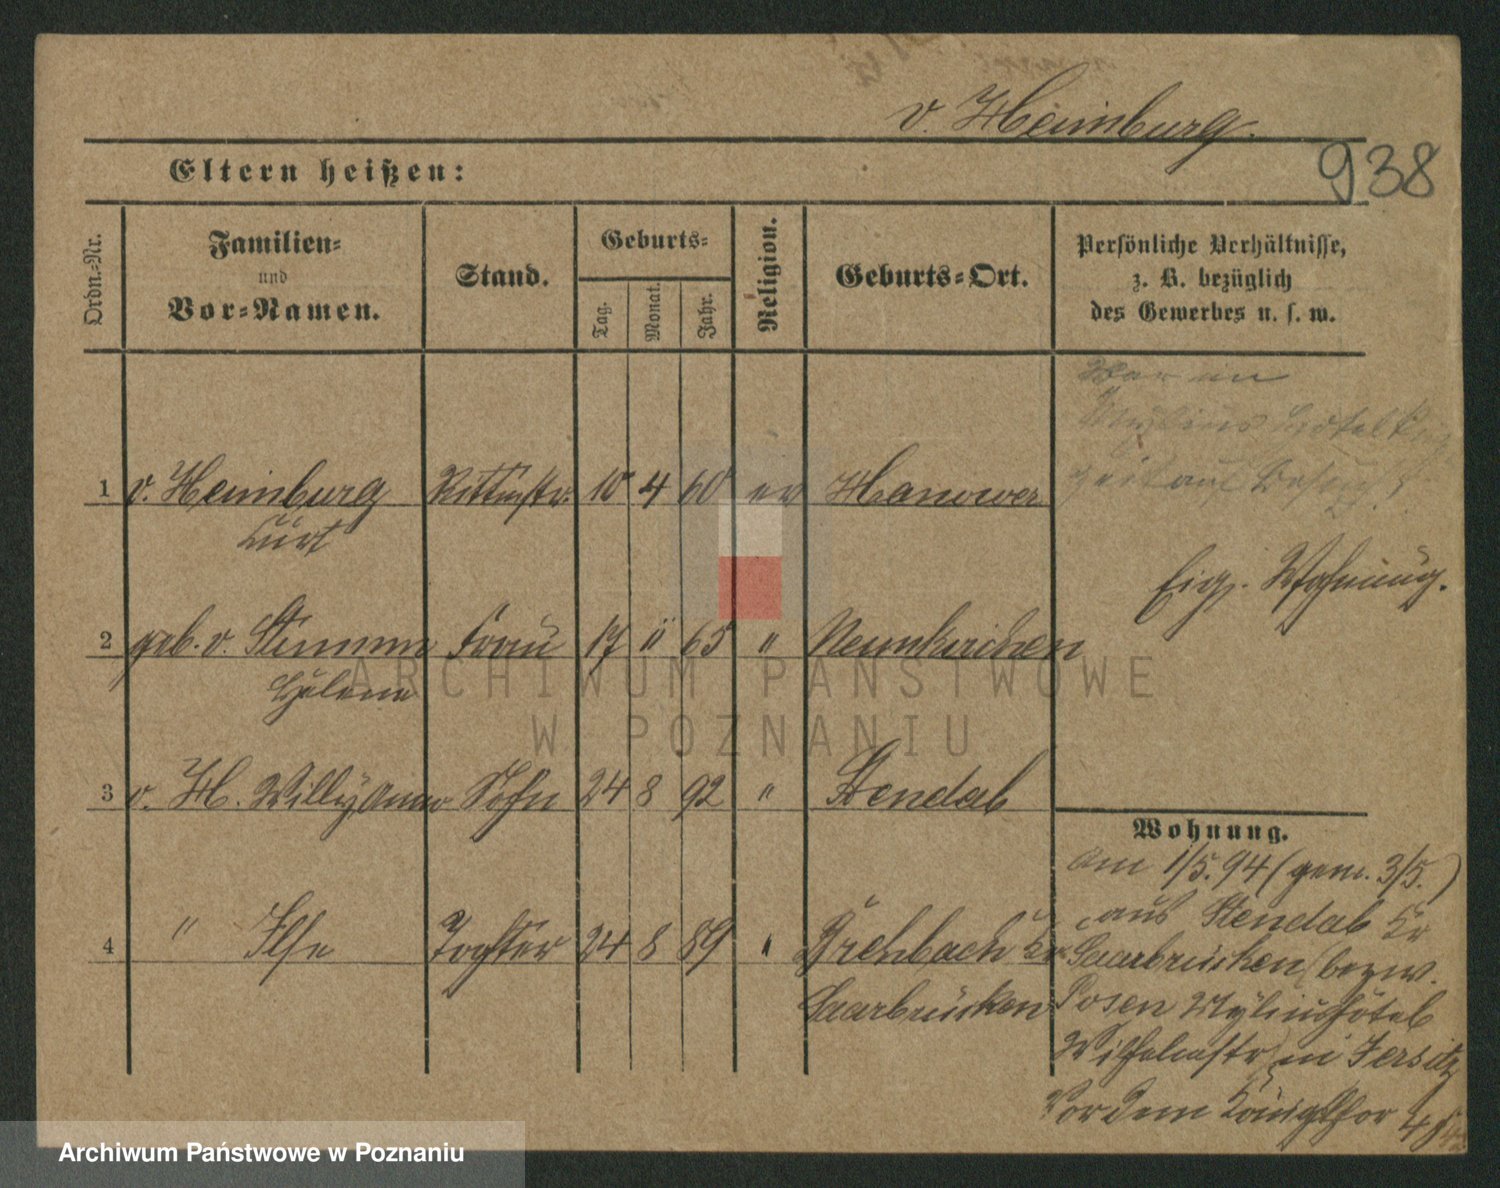 v. Heimburg.
938
Eltern heißen:
Ordn.-Nr.
Familien- und Vor-Namen.
Stand.
Geburts-
Tag.
Monat.
Jahr.
Religion.
Geburts-Ort.
Persönliche Verhältnisse,
z. B. bezüglich
des Gewerbes u. s. w.
War im
Mylius Hotel
1 v. Heimburg Rittmstr. 10 4 60 ev Hannover
Kurt
Eig. Wohnung.
2 geb. v. Stumm Frau 17 11 65 " Neunkirchen
Helene
3 v. H. Willy Sohn 24 8 92 " Stendal
Wohnung.
am 1/5. 94 (gem. 3/5.)
4 " Ilse Tochter 24 8 89 " Kr
Saarbrücken
aus Stendal Kr
Saarbrücken (bezw.
Posen Myliushôtel
Wilhelmstr) in Jersitz
Vor dem Königsthor 4
ARCHIWUM PAŃSTWOWE
W POZNANIU
Archiwum Państwowe w Poznaniu